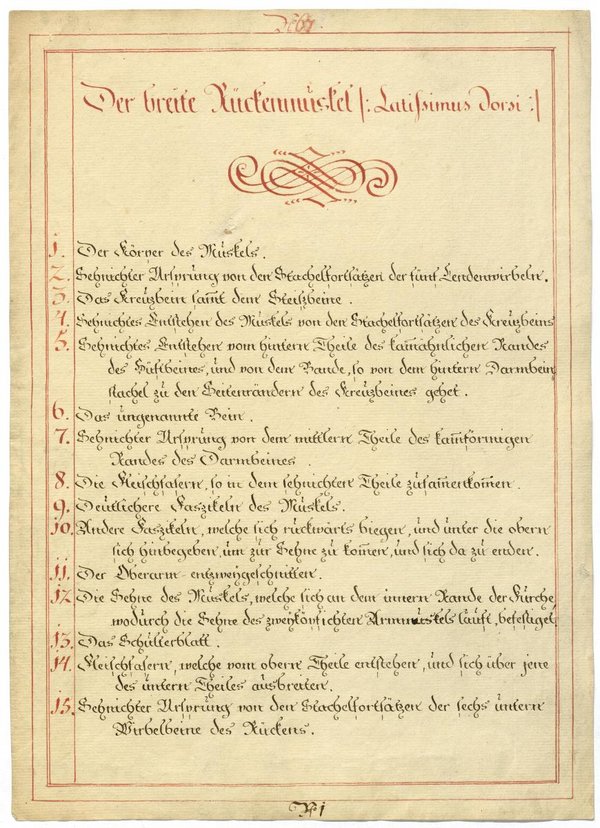 Der breite Rückenmuskel /: Latissimus Dorsi :/
1. Der Körper des Muskels.
2. Sehnichter Ursprung von den Stachelfortsätzen der fünf Lendenwirbeln.
3. Das Kreuzbein samt dem Steißbeine.
4. Sehnichtes Entstehen des Muskels von den Stachelfortsätzen des Kreuzbeins
5. Sehnichtes Entstehen vom hintern Theile des kammähnlichen Randes
des Hüftbeines, und von dem Bande, so von dem hintern Darmbein
stachel zu den Seitenrändern des Kreuzbeines gehet.
6. Das ungenannte Bein.
7. Sehnichter Ursprung von dem mittlern Theile des kammförmigen
Randes des Darmbeines.
8. Die Fleischfasern, so in dem sehnichten Theile zusammenkommen.
9. Deutlichere Faszikeln des Muskels.
10. Andere Faszikeln, welche sich rückwärts biegen, und unter die obern
sich hinbegeben, um zur Sehne zu kommen, und sich da zu enden.
11. Der Oberarm entzweygeschnitten.
12. Die Sehne des Muskels, welche sich an dem innern Rande der Furche
wodurch die Sehne des zweyköpfichten Armmuskels lauft, befestiget
13. Das Schulterblatt.
14. Fleischfasern, welche vom obern Theile entstehen, und sich über jene
des untern Theiles ausbreiten.
15. Sehnichter Ursprung von den Stachelfortsätzen der sechs untern
Wirbelbeine des Rückens.